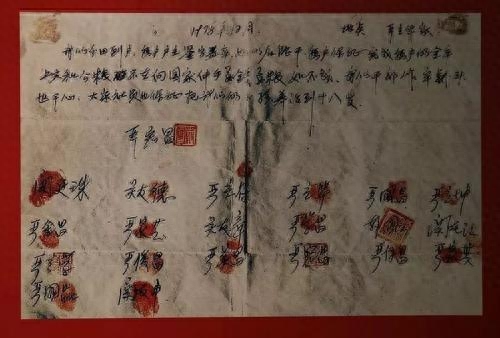 1978年12月 地点 严立华家
我们分田到户,每户户主签字盖章,如以后能干,每户保证完成每户的全年
上交和公粮,不在向国家伸手要钱要粮,如不成,我们干部作牢刹头
也干心,大家社员也保证把我们的小孩养活到十八岁。
严宏昌
关廷珠 关友德 严立付 严立华 严国昌 严立坤
严金昌 严家芝 关友章 严学昌 关友江
严俊昌 严美昌 严付昌 严家其
严国品 关友申